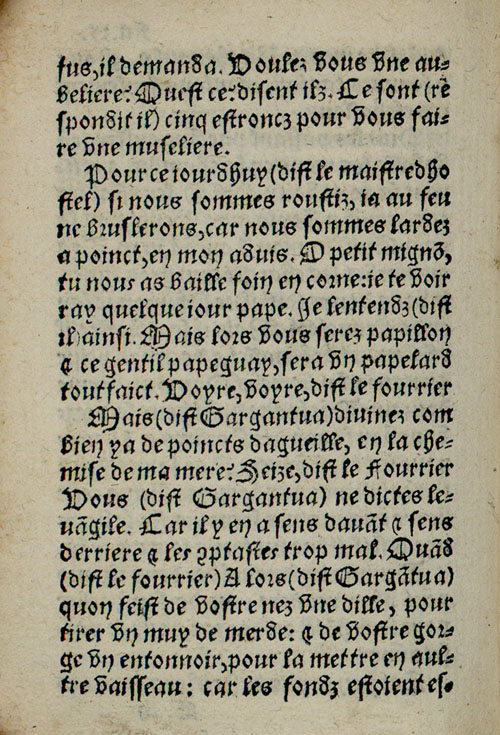 sus, il demanda. Voulez vous vne au-
beliere? Quest ce? disent ilz. Ce sont (rē
spondit il) cinq estroncz pour vous fai-
re vne museliere.
Pource iourdhuy (dist le maistredho
stel) si nous sommes roustiz, ia au feu
ne bruslerons, car nous sommes lardez
a poinct, en mon aduis. O petit mignō,
tu nous as baille foin en corne: ie te voir
ray quelque iour pape. Je lentendz (dist
il) ainsi. Mais lors vous serez papillon
⁊ ce gentil papeguay, sera vn papelard
tout faict. Voyre, voyre, dist le fourrier
Mais (dist Gargantua) diuinez com
bien ya de poincts dagueille, en la che-
mise de ma mere? Seize, dist le Fourrier
Vous (dist Gargantua) ne dictes le-
uāgile. Car il y en a sens dauāt ⁊ sens
derriere ⁊ les ꝯptastes trop mal. Quād
(dist le fourrier) A lors (dist Gargātua)
quon feist de vostre nez vne dille, pour
tirer vn muy de merde: ⁊ de vostre gor-
ge vn entonnoir, pour la mettre en aul-
tre vaisseau: car les fondz estoient es-